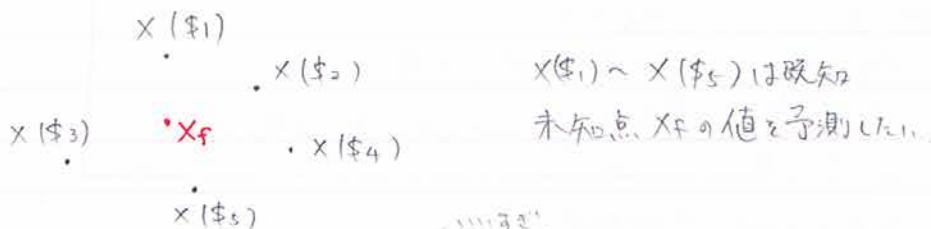 X($1)
X($2)
X($3)
Xf
X($4)
X($5)
X($1)~X($5)は既知
未知点 Xfの値を予測したい